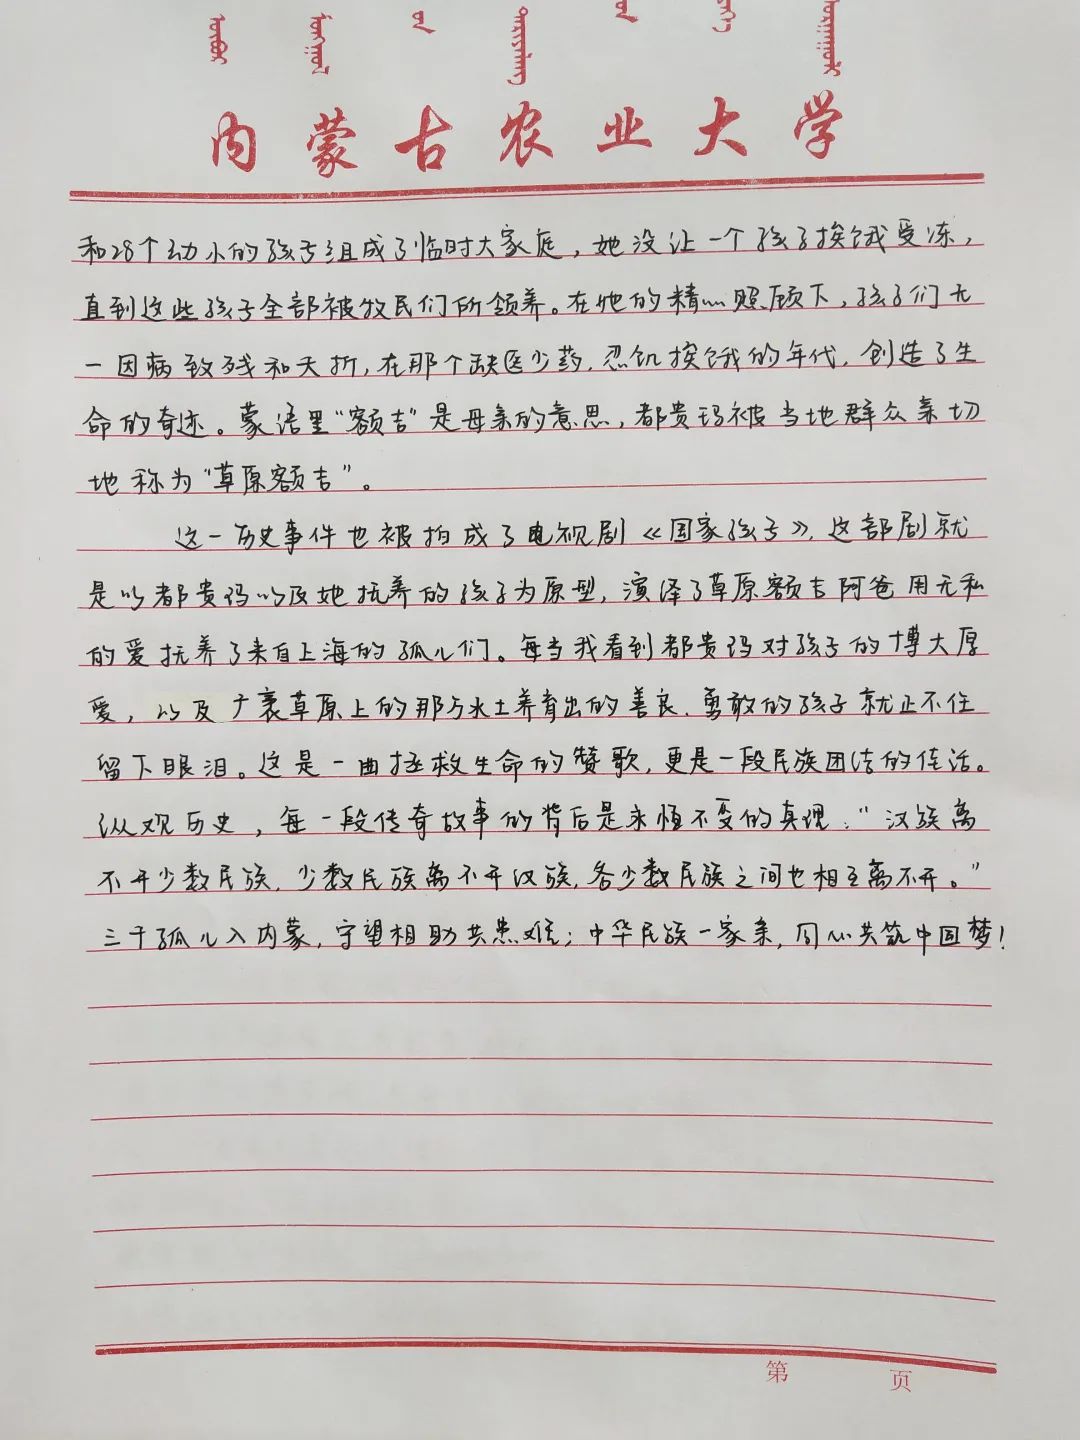 内蒙古农业大学
和28个幼小的孩子组成了临时大家庭，她没让一个孩子挨饿受冻，
直到这些孩子全部被牧民们所领养。在她的精心照顾下，孩子们无
一因病致残和夭折，在那个缺医少药、忍饥挨饿的年代，创造了生
命的奇迹。蒙语里“额吉”是母亲的意思，都贵玛被当地群众亲切
地称为“草原额吉”。
这一历史事件也被拍成了电视剧《国家孩子》，这部剧就
是以都贵玛以及她抚养的孩子为原型，演泽了草原额吉阿爸用无私
的爱抚养了来自上海的孤儿们。每当我看到都贵玛对孩子的博大厚
爱，以及广袤草原上的那方水土养育出的善良、勇敢的孩子就止不住
留下眼泪。这是一曲拯救生命的赞歌，更是一段民族团结的佳话。
纵观历史，每一段传奇故事的背后是永恒不变的真理：“汉族离
不开少数民族，少数民族离不开汉族，各少数民族之间也相互离不开。”
三千孤儿入内蒙，守望相助共患难；中华民族一家亲，同心共筑中国梦！
第 页